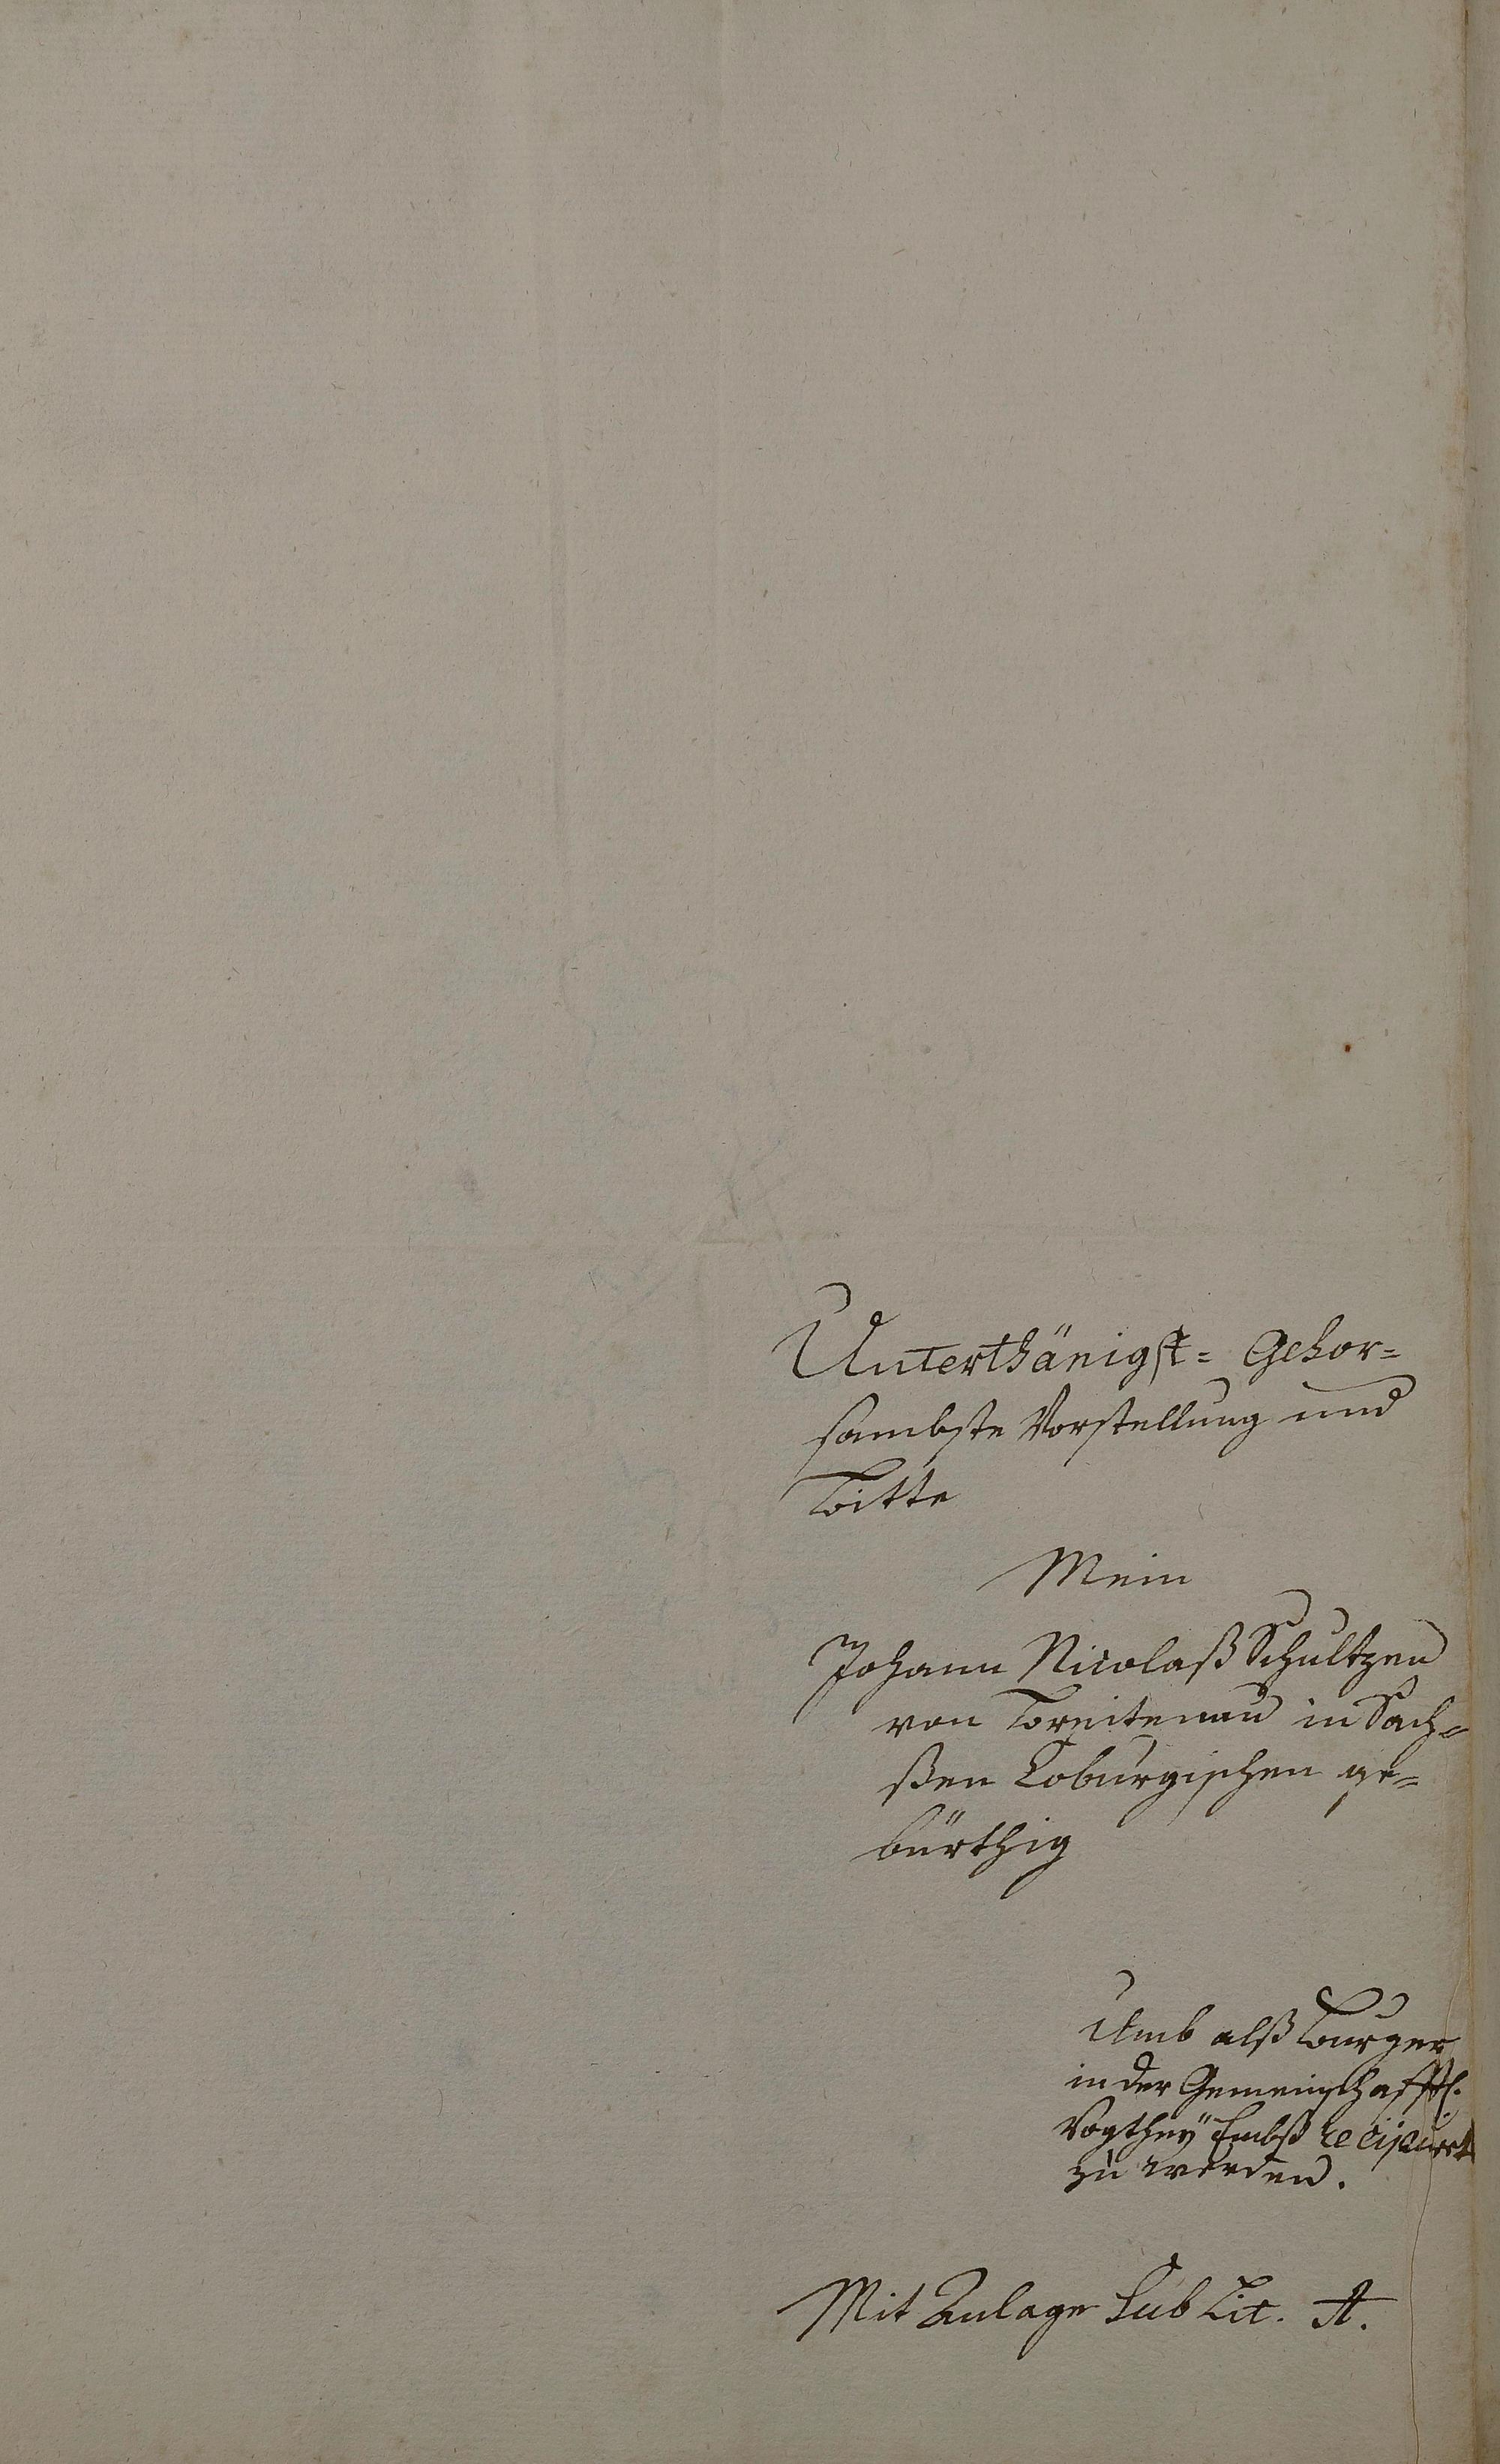 Unterthänigst= Gehor=
sambste Vorstellung und
Bitte
Mein
Johann Nicolaß Schultzen
von Breitenau in Sach=
ßen Coburgischen ge=
bürthig
Umb alß Burger
in der Gemeinschafftl.
Vogthey Embß recipiirt
zu werden.
Mit Anlage Sub Lit. A.